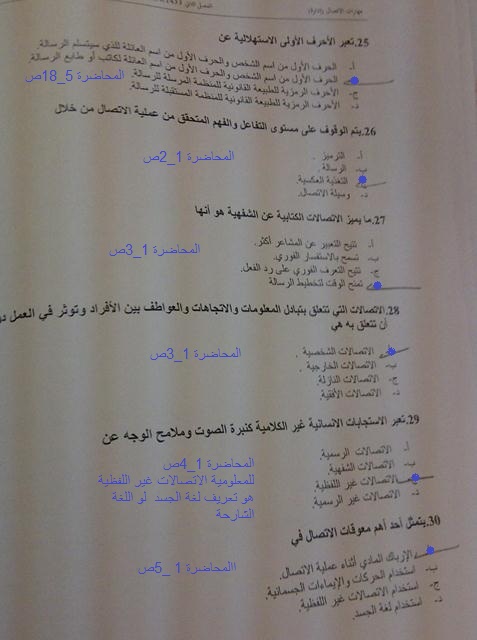 مهارات الاتصال (إدارة)
25.تعبر الأحرف الأولى الاستهلالية عن
أ- الحرف الأول من اسم الشخص والحرف الأول من اسم العائلة للذي سيتسلم الرسالة.
ب- الحرف الأول من اسم الشخص والحرف الأول من اسم العائلة لكاتب أو طابع الرسالة.
ج- الأحرف الرمزية للطبيعة القانونية للمنظمة المرسلة للرسالة.
د- الأحرف الرمزية للطبيعة القانونية للمنظمة المستقبلة للرسالة.
المحاضرة 5_18ص
26.يتم الوقوف على مستوى التفاعل والفهم المتحقق من عملية الاتصال من خلال
أ- الترميز .
ب- الرسالة .
التغذية العكسية.
د- وسيلة الاتصال.
المحاضرة 1_2ص
27.ما يميز الاتصالات الكتابية عن الشفهية هو أنها
أ- تتيح التعبير عن المشاعر أكثر.
ب- تسمح بالاستفسار الفوري.
ج- تتيح التعرف الفوري على رد الفعل.
تمنح الوقت لتخطيط الرسالة
المحاضرة 1_3ص
28.الاتصالات التي تتعلق بتبادل المعلومات والاتجاهات والعواطف بين الأفراد وتوثر في العمل
أن تتعلق به هي
الاتصالات الشخصية .
ب- الاتصالات الخارجية .
ج- الاتصالات النازلة.
د- الاتصالات الأفقية.
المحاضرة 1_3ص
29.تعبر الاستجابات الانسانية غير الكلامية كنبرة الصوت وملامح الوجه عن
أ- الاتصالات الرسمية.
ب- الاتصالات الشفهية.
الاتصالات غير اللفظية.
د- الاتصالات غير الرسمية.
المحاضرة 1_4ص
للمعلومية الاتصالات غير اللفظية
هو تحريف لغة الجسد لو اللغة
الشارحة
30.يتمثل أحد أهم معوقات الاتصال في
الإرباك المادي أثناء عملية الاتصال.
ب- استخدام الحركات والإيماءات الجسمانية.
ج- استخدام الاتصالات غير اللفظية.
د- استخدام لغة الجسد.
االمحاضرة 1_5ص